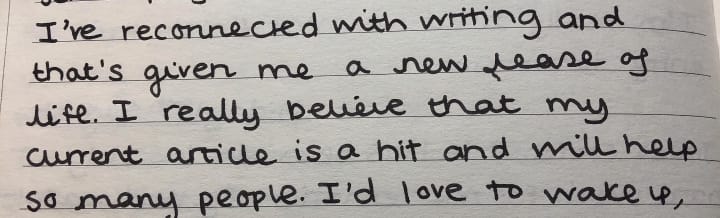 I've reconnected with writing and
that's given me a new lease of
life. I really believe that my
current article is a hit and will help
so many people. I'd love to wake up,